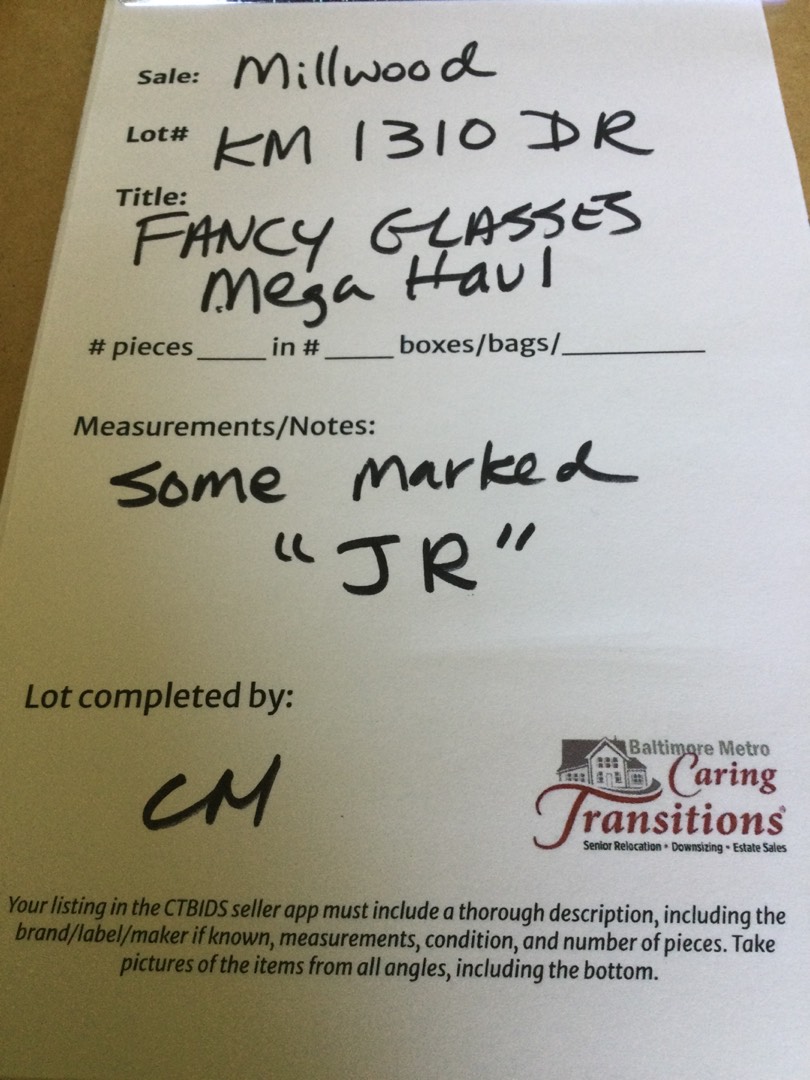 Sale: Millwood
Lot# KM 1310 DR
Title:
FANCY GLASSES
Mega Haul
# pieces_____ in #_____ boxes/bags/__________
Measurements/Notes:
Some Marked
"JR"
Lot completed by:
CM
Baltimore Metro
Caring
Transitions®
Senior Relocation • Downsizing • Estate Sales
Your listing in the CTBIDS seller app must include a thorough description, including the
brand/label/maker if known, measurements, condition, and number of pieces. Take
pictures of the items from all angles, including the bottom.